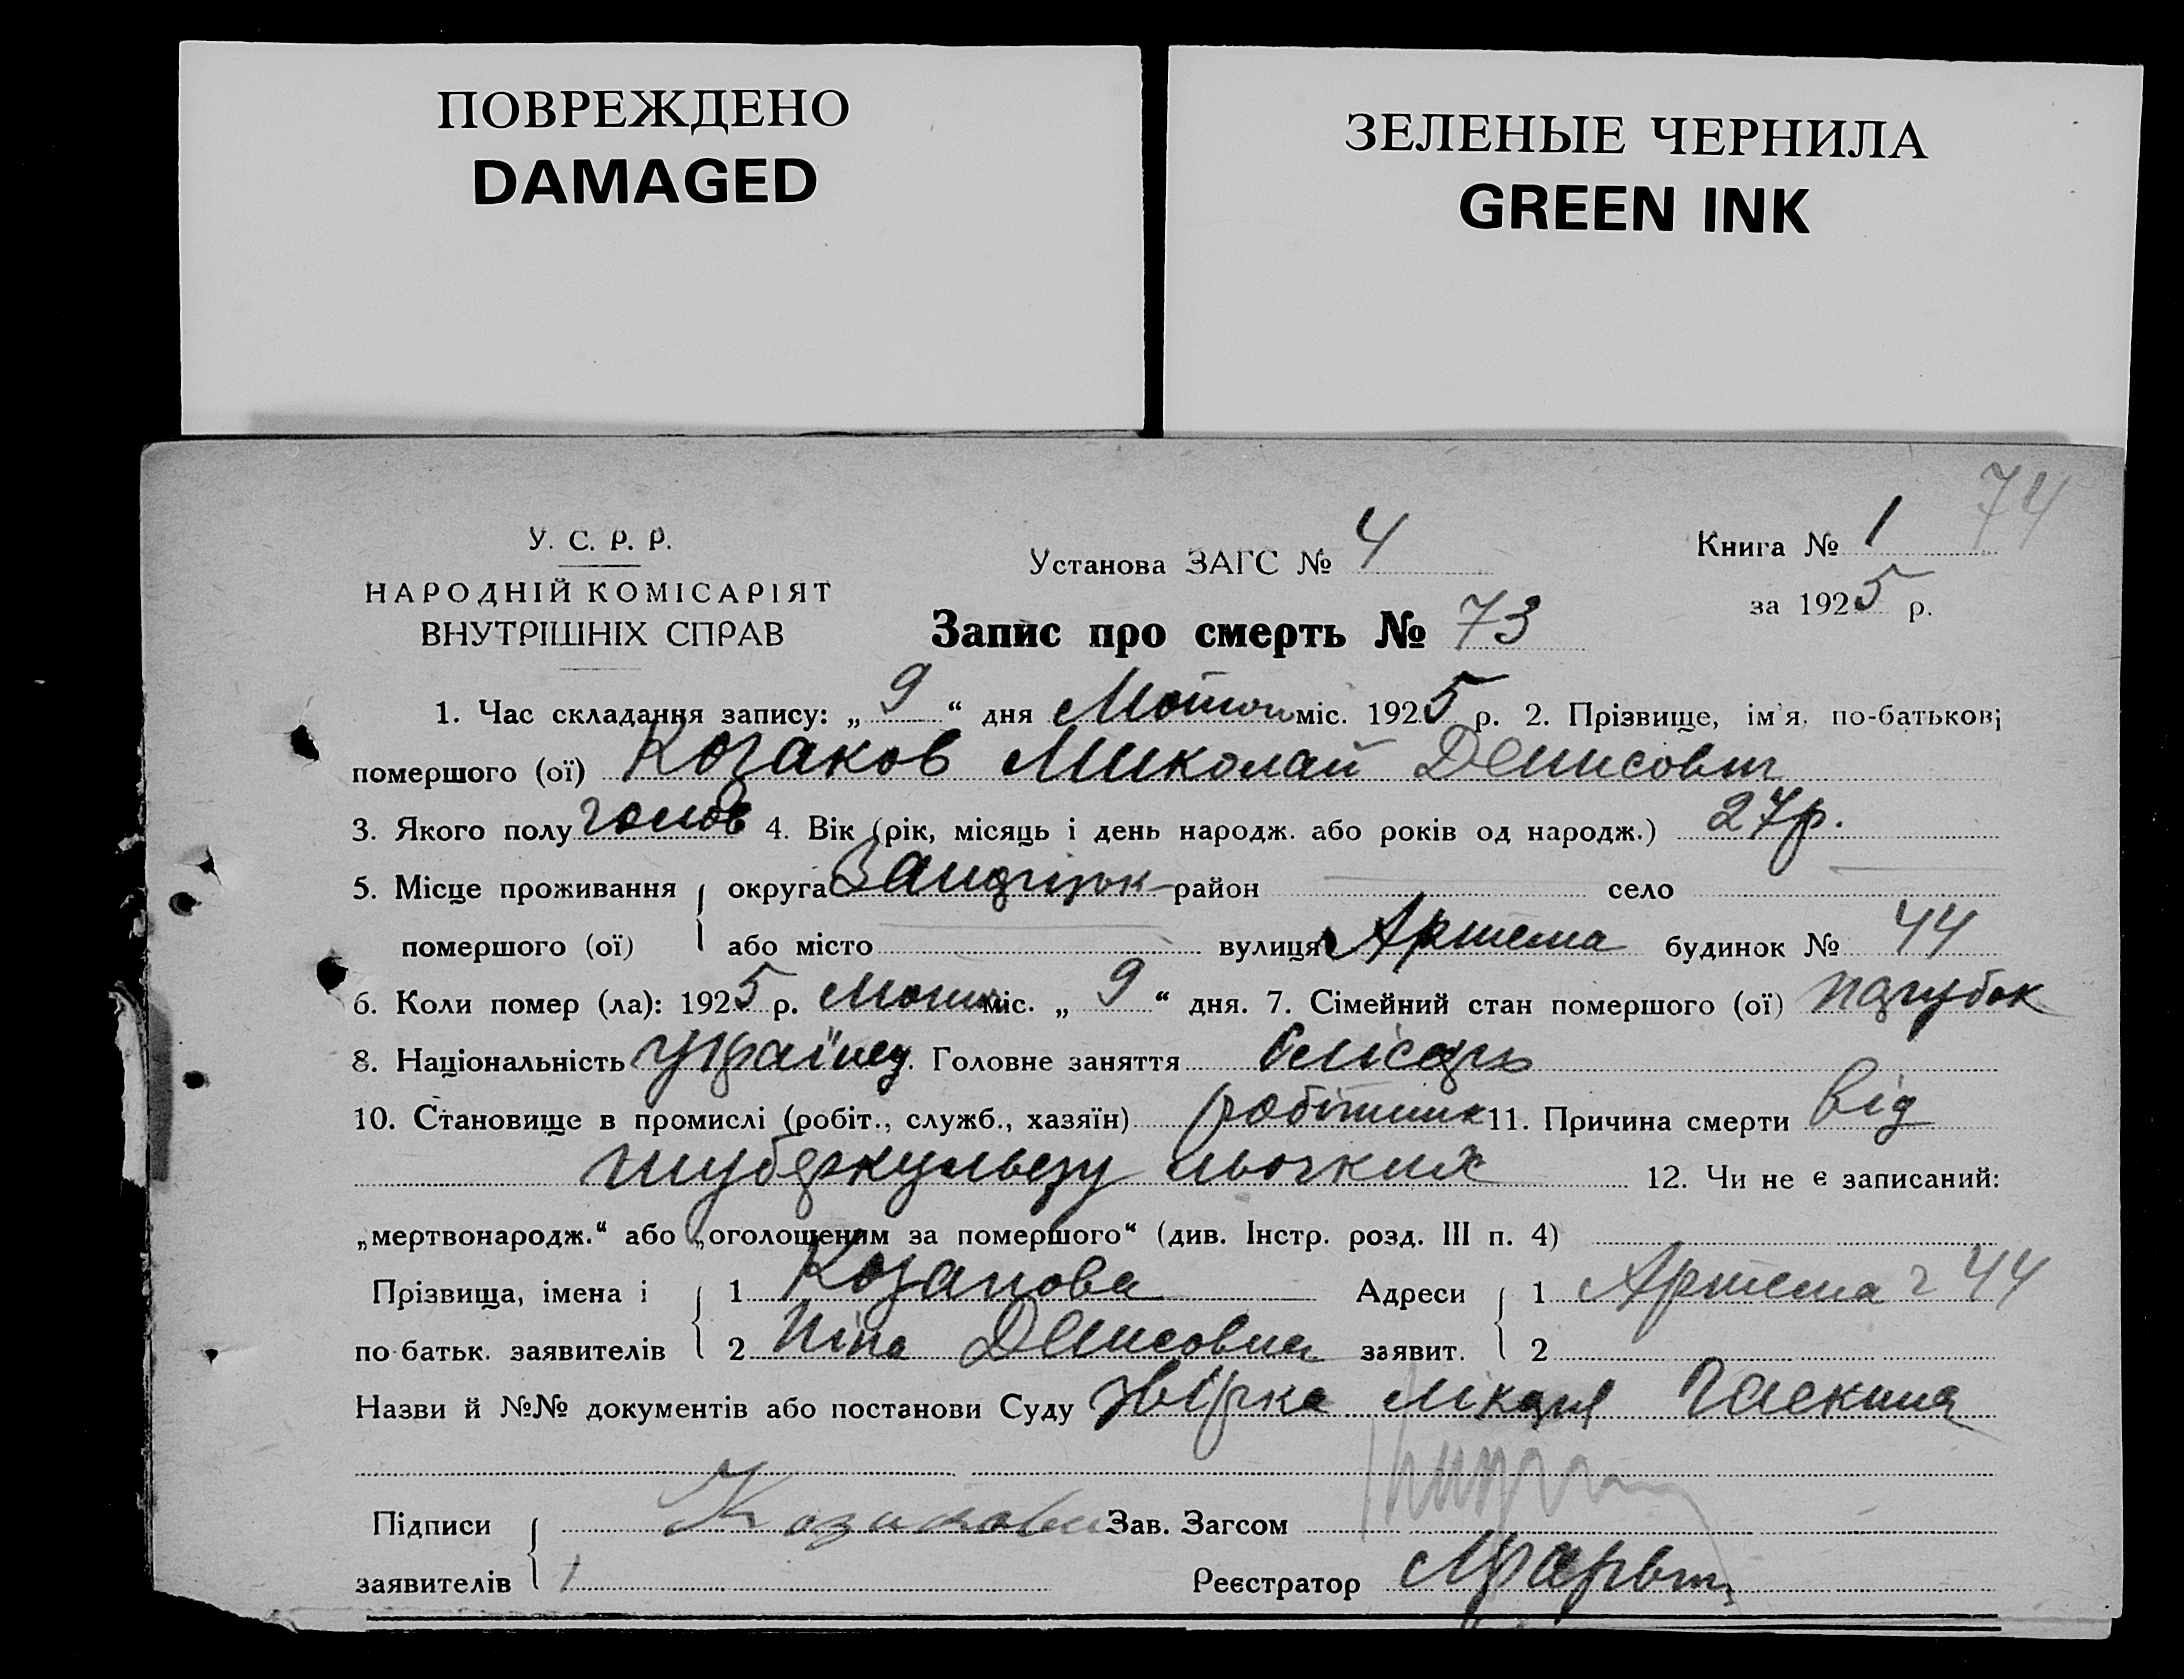 ПОВРЕЖДЕНО
DAMAGED
ЗЕЛЕНЫЕ ЧЕРНИЛА
GREEN INK
74
У. С. Р. Р.
НАРОДНІЙ КОМІСАРІЯТ
ВНУТРІШНІХ СПРАВ
Установа ЗАГС № 4
Книга № 1
за 1925 р.
Запис про смерть № 73
1. Час складання запису: „ 9 “ дня міс. 1925 р. 2. Прізвище, ім'я, по-батькові
помершого (ої) Козаков Миколай Денисович
3. Якого полу 4. Вік (рік, місяць і день народж. або років од народж.) 27р.
5. Місце проживання округа район село
помершого (ої) або місто вулиця Артема будинок № 44
6. Коли помер (ла): 1925 р. міс. „ 9 “ дня. 7. Сімейний стан помершого (ої) парубок
8. Національність Україне Головне заняття слісарь
10. Становище в промислі (робіт., служб., хазяїн) робітник 11. Причина смерти від
туберкульозу льогких 12. Чи не є записаний:
„мертвонародж.“ або „оголошеним за помершого“ (див. Інстр. розд. III п. 4)
Прізвища, імена і 1 Козакова Адреси 1 Артема 44
по-батьк. заявителів 2 Ніна Денисовна заявит. 2
Назви й №№ документів або постанови Суду лікаря
Підписи Козакова Зав. Загсом
заявителів Реєстратор